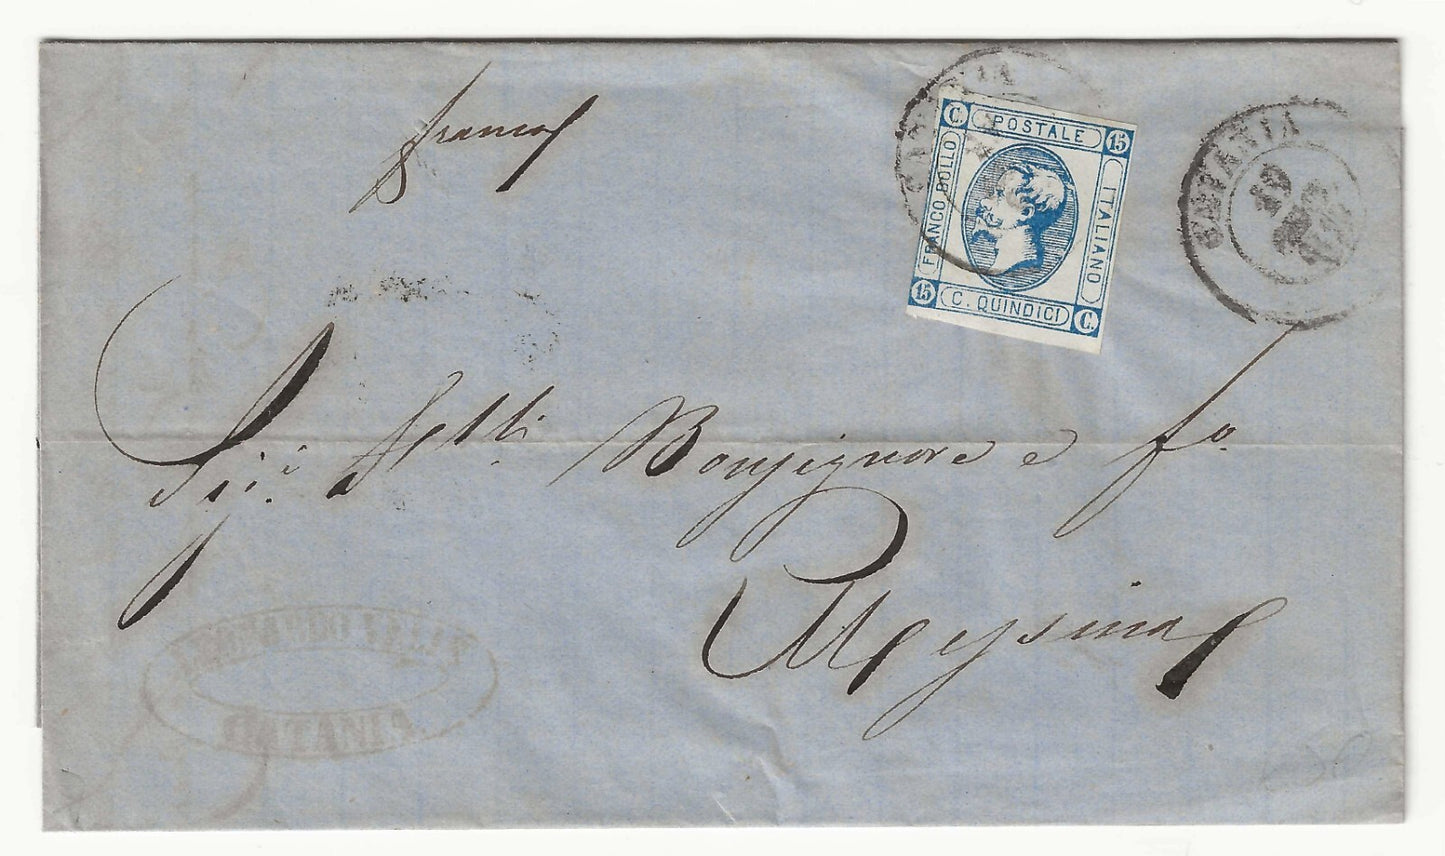 franca
CATANIA
C. POSTALE 15
FRANCO BOLLO
ITALIANO
15 C. QUINDICI C.
CATANIA
19
Sigi. Flli Bonsignore e fo
Messina
CATANIA